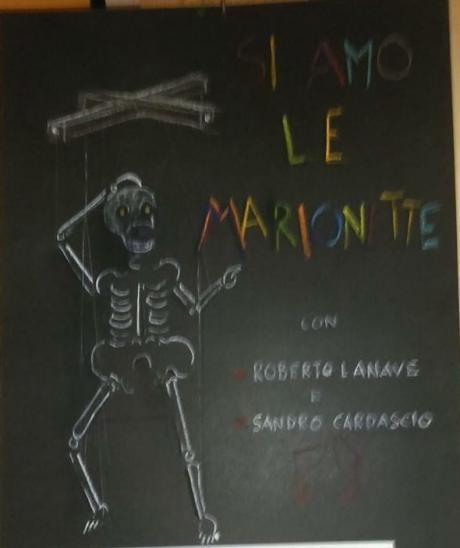 SI AMO
LE
MARIONETTE
CON
ROBERTO LANAVE
E
SANDRO CARDASCIO